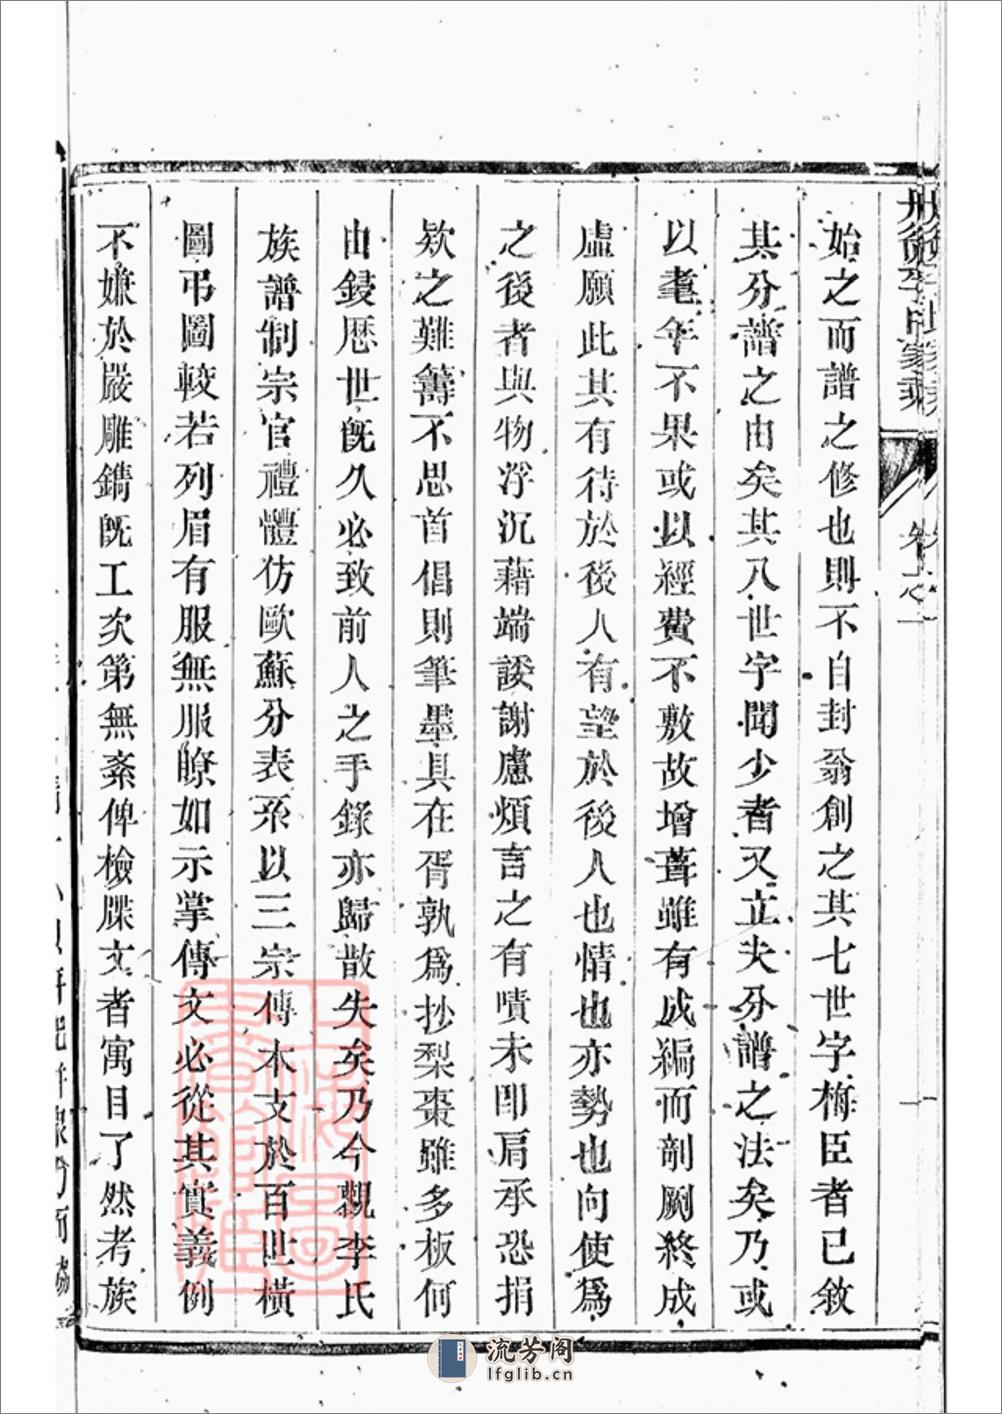 始之而譜之修也則不自封翁創之其七世字梅臣者已敘
其分譜之由矣其八世字聞少者又立夫分譜之法矣乃或
以耄年不果或以經費不敷故增葺雖有成編而剞劂終成
虛願此其有待於後人有望於後人也情也亦勢也向使為
之後者與物浮沉藉端諉謝慮煩言之有嘖未即肩承恐捐
欵之難籌不思首倡則筆墨具在胥孰為抄梨棗雖多板何
由鋟歷世既久必致前人之手錄亦歸散失矣乃今覩李氏
族譜制宗官禮體仿歐蘇分表系以三宗傳本支於百世橫
圖弔圖較若列眉有服無服瞭如示掌傳文必從其實義例
不嫌於嚴雕鐫既工次第無紊俾檢牒文者寓目了然考族
流芳阁
lfglib.cn